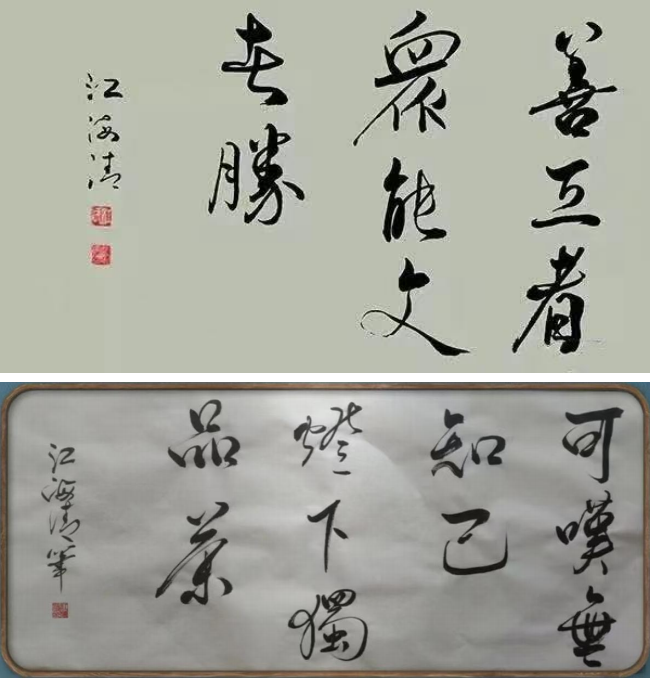 善互者
眾能文
者勝
江海清
可嘆無
知己
燈下獨
品茶
江海清筆